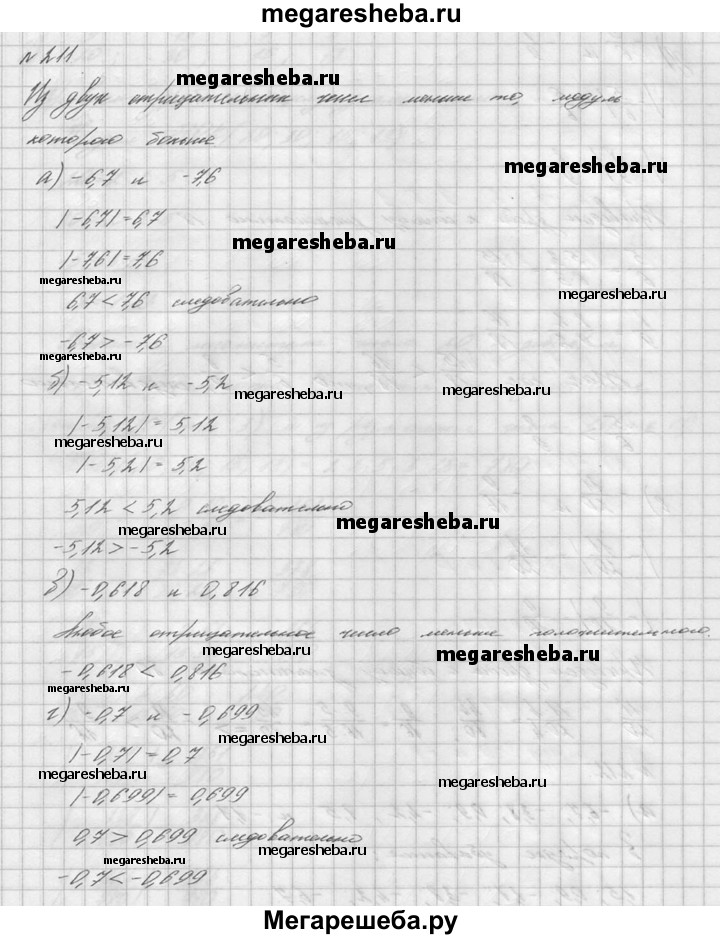 megaresheba.ru
№ 211
megaresheba.ru
Из двух отрицательных чисел меньше то, модуль
которого больше
megaresheba.ru
а) -6,7 и -7,6
|-6,7| = 6,7
megaresheba.ru
|-7,6| = 7,6
megaresheba.ru
6,7 < 7,6 следовательно
megaresheba.ru
-6,7 > -7,6
megaresheba.ru
б) -5,12 и -5,2
megaresheba.ru
megaresheba.ru
|-5,12| = 5,12
megaresheba.ru
|-5,2| = 5,2
5,12 < 5,2 следовательно
megaresheba.ru
megaresheba.ru
-5,12 > -5,2
в) -0,618 и 0,816
Любое отрицательное число меньше положительного.
megaresheba.ru
megaresheba.ru
-0,618 < 0,816
megaresheba.ru
г) -0,7 и -0,699
megaresheba.ru
|-0,7| = 0,7
megaresheba.ru
megaresheba.ru
|-0,699| = 0,699
0,7 > 0,699 следовательно
megaresheba.ru
megaresheba.ru
-0,7 < -0,699
Мегарешеба.ру